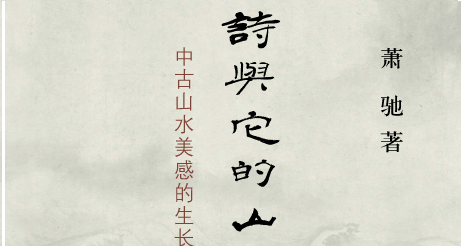 萧驰著
詩與它的山
中古山水美感的生长